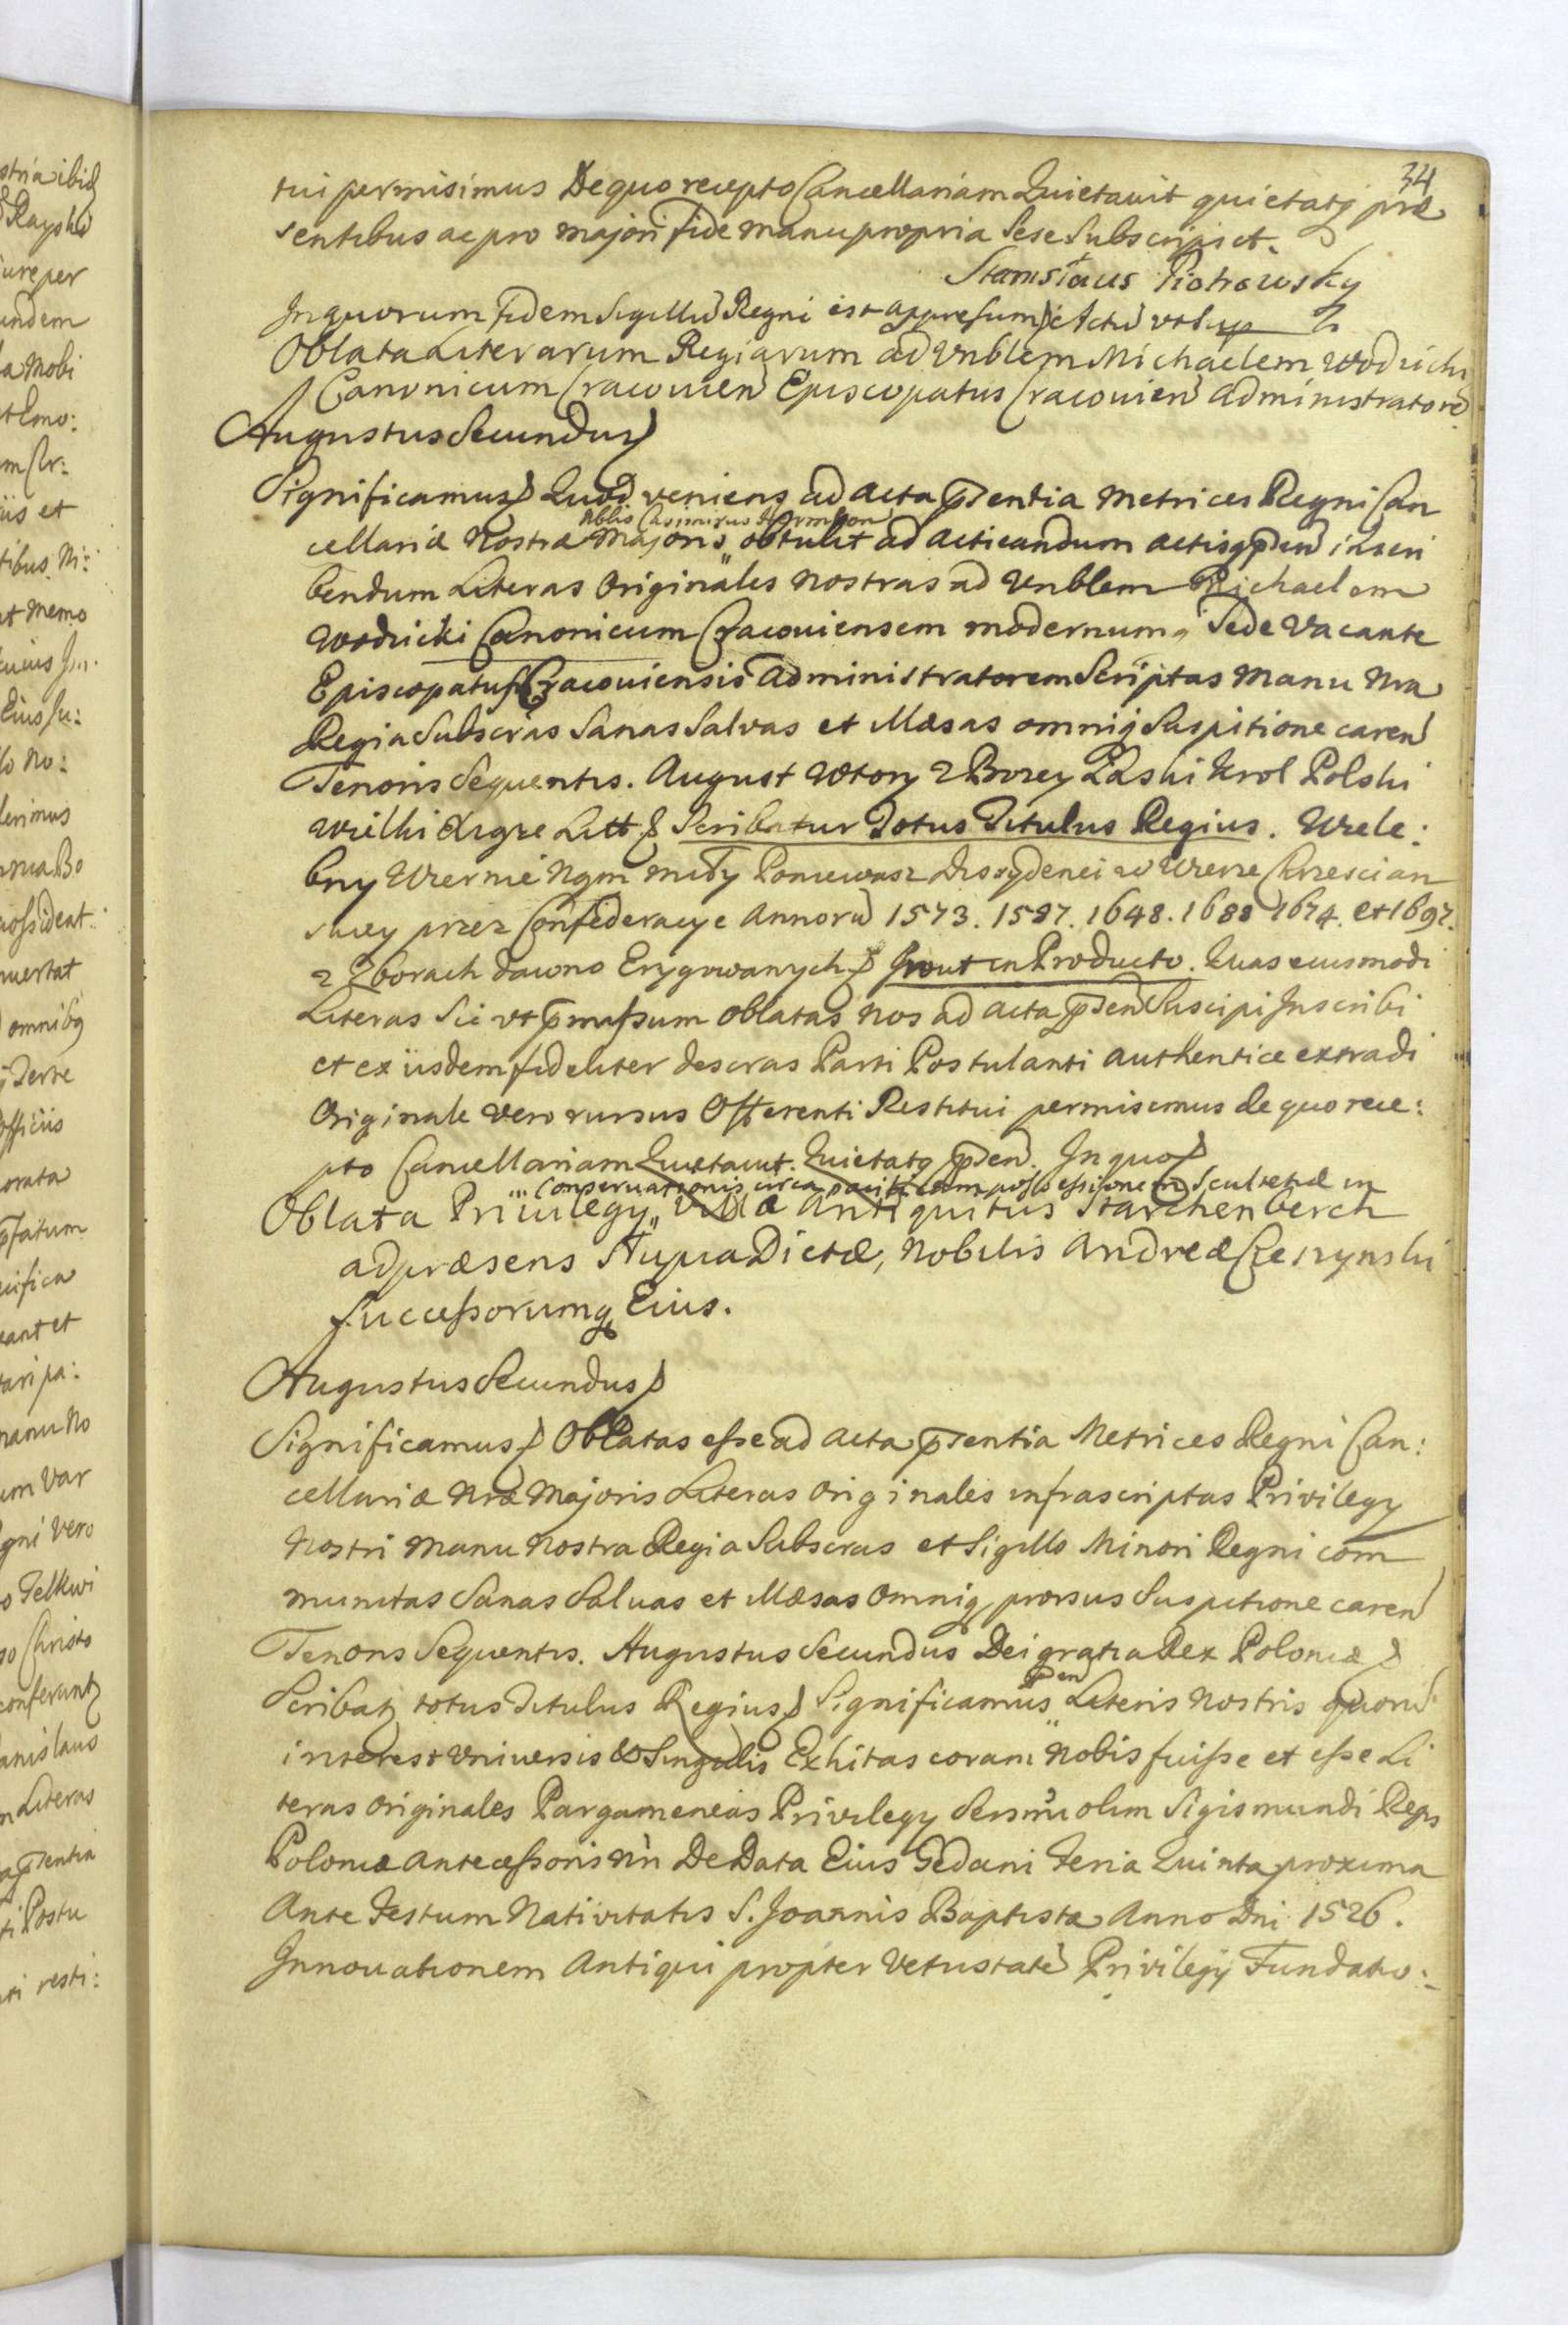 34
tui permisimus De quo recepto Cancellariam Quietavit quietatq præ
sentibus ac pro majori fide manu propria sese subscripsit.
Stanisłaus Piotrowsky
In quorum fidem Sigillū Regni est appressum Actū ut sup
Oblata Literarum Regiarum ad Vnblem Michaelem Wodzicki
Canonicum Cracouien Episcopatus Cracouien Administratorē
Augustus Secundus
Significamus Quod veniens ad acta pñsentia Metrices Regni Can
Nblis Casimirus
cellariæ Nostræ Majoris obtulit ad acticandum actisq pñsen inscri
bendum Literas Originales nostras ad Vnblem Michaelem
Wodzicki Canonicum Cracouiensem modernum Sede Vacante
Episcopatus Cracouiensis Administratorem Scriptas Manu Nra
Regia Subscras Sanas Salvas et Illæsas omniq Suspitione caren
Tenoris Sequentis. August Wtory z Bozey Łaski Krol Polski
Wielki Xiąze Litt & Scribatur Totus Titulus Regius. Wiele:
bny Wiernie Nąm miły Poniewasz Dissydenci w Wierze Chrzescian
skiey przez Confederacye Annorū 1573. 1587. 1648. 1688 1674. et 1697.
z Zborach dawno Erygowanych & prout in Producto. Quas eiusmodi
Literas Sic ut pmissum oblatas nos ad acta pñsen Suscipi Inscribi
et ex iisdem fideliter descras Parti Postulanti authentice extradi
Originale vero rursus Offerenti Restitui permisimus de quo rece:
pto Cancellariam Quietavit. Quietatq pñsen. In quor
Conservationis circa pacificam possessionem Scultetiæ in
Oblata Privilegy Villa Antiquitus Starchenberch
ad præsens Słupia Dictæ, Nobilis Andreæ
Successorumq Eius.
Augustus Secundus
Significamus Oblatas esse ad acta pñsentia Metrices Regni Can:
cellariæ Nræ Majoris Literas Originales infrascriptas Privilegy
Nostri Manu Nostra Regia Subscras et Sigillo Minori Regni com
munitas Sanas Saluas et Illæsas Omniq prorsus Suspitione caren
Tenoris Sequentis. Augustus Secundus Dei gratia Rex Poloniæ &
pñsen
Scribatq totus Titulus Regius Significamus Literis Nostris quorū
interest Vniuersis & Singulis Exhitas coram Nobis fuisse et esse Li
teras Originales Pargameneas Privilegy Sersmi olim Sigismundi Regis
Poloniæ antecessoris Nri De Data Eius Gedani Feria Quinta proxima
Ante Festum Nativitatis S. Joannis Baptistæ Anno Dni 1526.
Innouationem Antiqui propter Vetustatē Privilegij Fundatio: